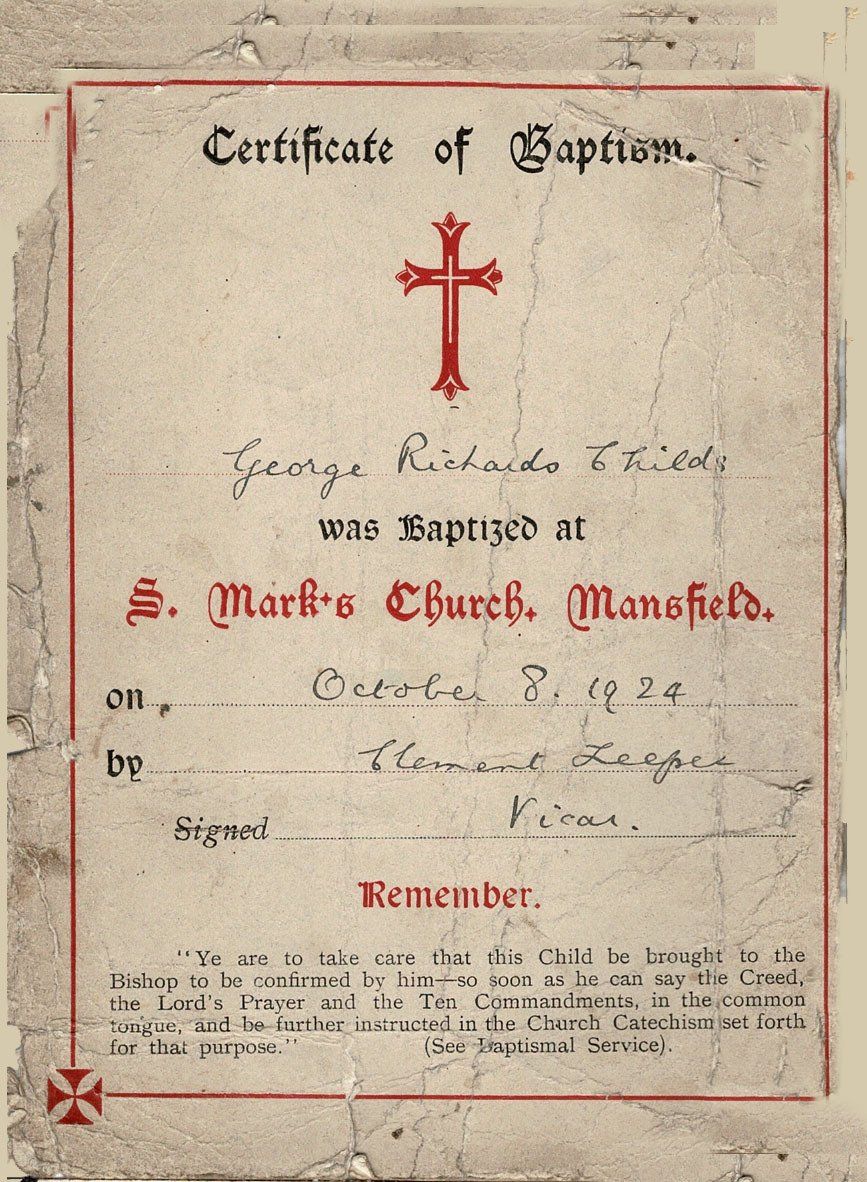 Certificate of Baptism.
George Richards Childs
was Baptized at
S. Mark's Church, Mansfield.
on October 8. 1924
by Clement Leeper
Signed Vicar.
Remember.
"Ye are to take care that this Child be brought to the
Bishop to be confirmed by him—so soon as he can say the Creed,
the Lord's Prayer and the Ten Commandments, in the common
tongue, and be further instructed in the Church Catechism set forth
for that purpose." (See Baptismal Service).